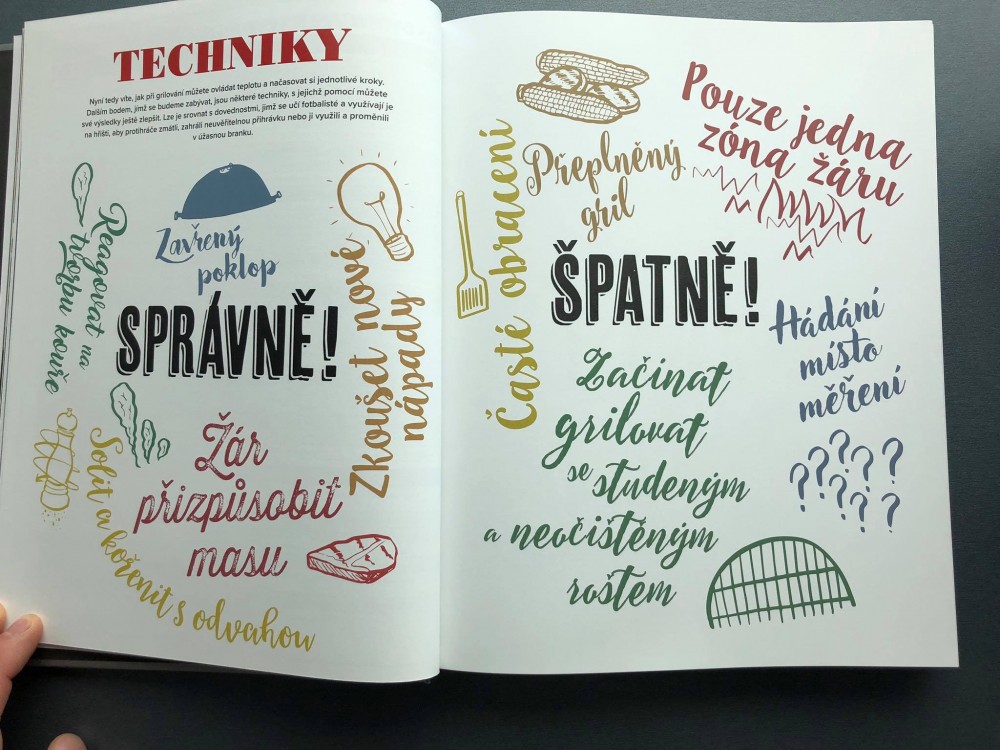 TECHNIKY
Nyní tedy víte, jak při grilování můžete ovládat teplotu a načasovat si jednotlivé kroky.
Dalším bodem, jímž se budeme zabývat, jsou některé techniky, s jejichž pomocí můžete
své výsledky ještě zlepšit. Lze je srovnat s dovednostmi, jimž se učí fotbalisté a využívají je
na hřišti, aby protihráče zmátli, zahráli neuvěřitelnou přihrávku nebo ji využili a proměnili
v úžasnou branku.
Reagovat na
tvorbu kouře
Zavřený
poklop
Zkoušet nové
nápady
SPRÁVNĚ!
Žár
přizpůsobit
masu
Solit a kořenit s odvahou
Časté obracení
Přeplněný
gril
Pouze jedna
zóna žáru
ŠPATNĚ!
Hádání
místo
měření
Začínat
grilovat
se studeným
a neočištěným
roštem
????????